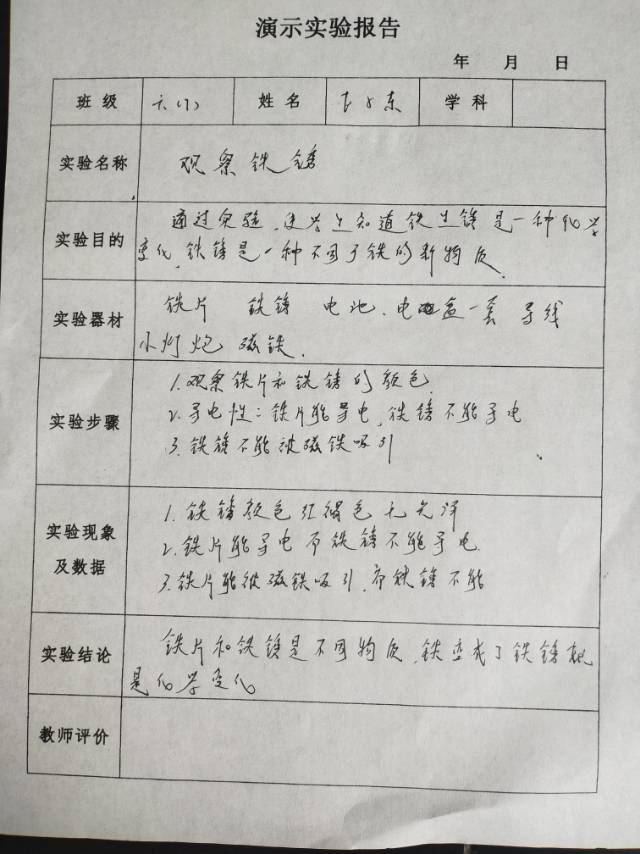 演示实验报告
年 月 日
班级 六(1) 姓名 东 学科
实验名称 观察铁锈
实验目的 通过实验,使学生知道铁生锈是一种化学
变化,铁锈是一种不同于铁的新物质.
实验器材 铁片 铁锈 电池、电池盒一套 导线
小灯炮 磁铁.
实验步骤 1.观察铁片和铁锈的颜色.
2.导电性:铁片能导电,铁锈不能导电
3.铁锈不能被磁铁吸引
实验现象及数据 1.铁锈颜色红褐色无光泽
2.铁片能导电而铁锈不能导电.
3.铁片能被磁铁吸引,而铁锈不能
实验结论 铁片和铁锈是不同物质,铁变成了铁锈就
是化学变化
教师评价